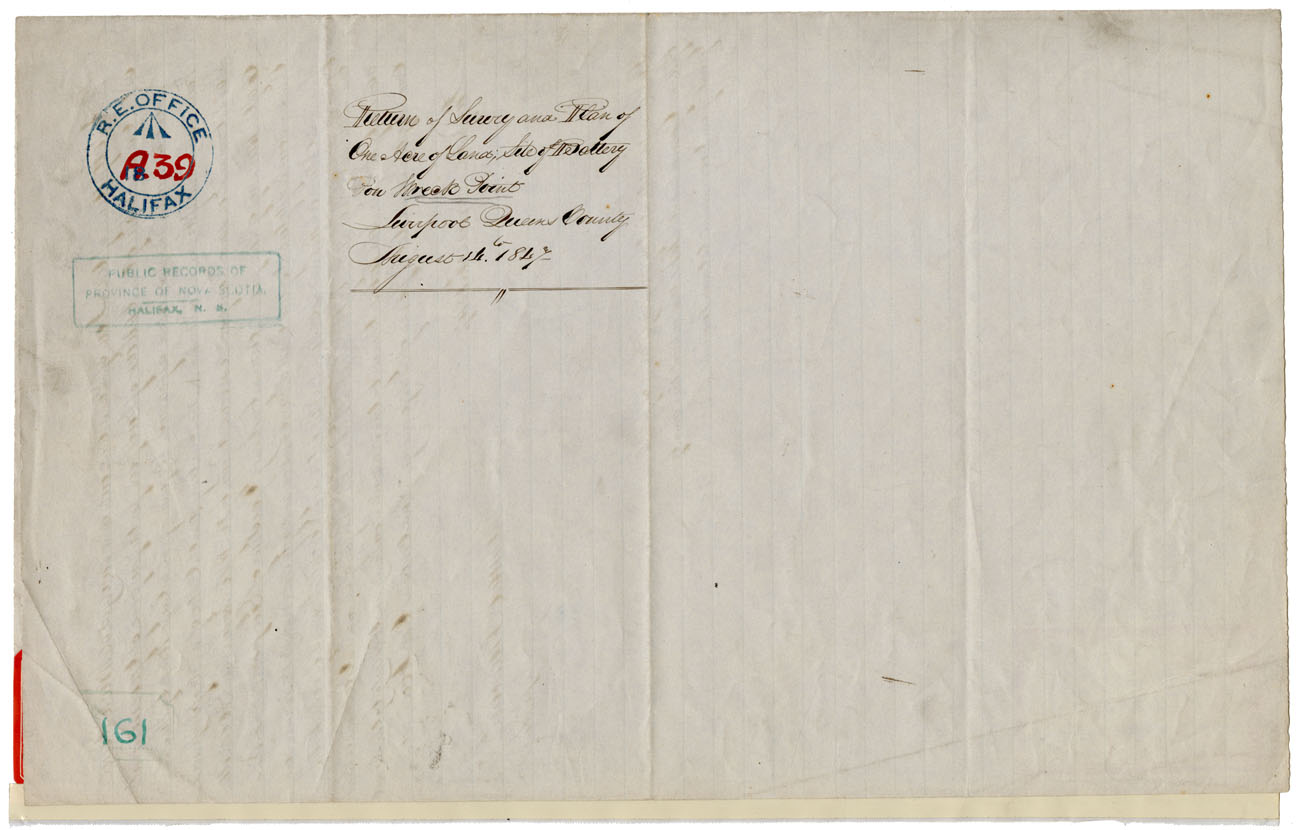 R.E. OFFICE
A 39
HALIFAX
PUBLIC RECORDS OF
PROVINCE OF NOVA SCOTIA,
HALIFAX, N. S.
Return of Survey and Plan of
One Acre of Land, Site of Battery
on Wreck Point
Liverpool Queens County
August 14th 1847
161